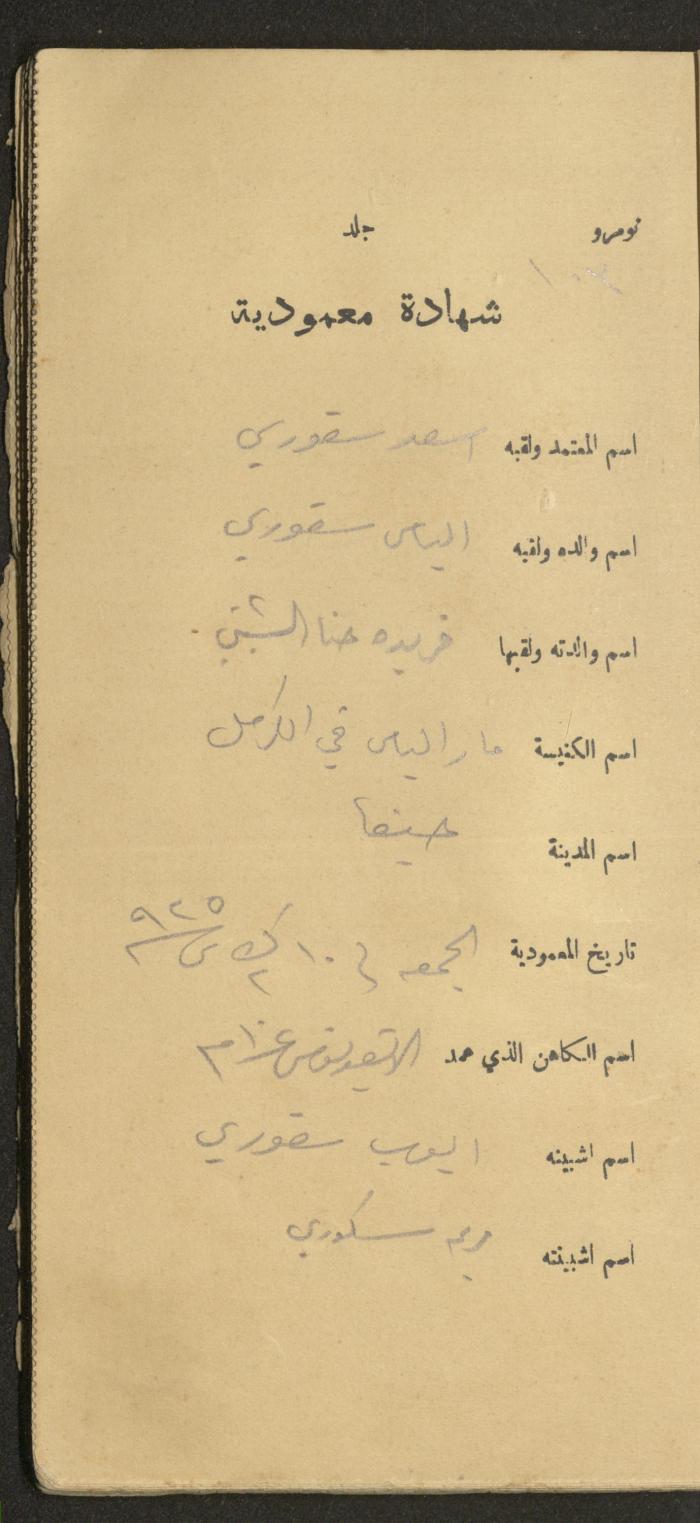 نومرو جلد
١٠٣
شهادة معمودية
اسم المعتمد ولقبه اسعد سقوري
اسم والده ولقبه الياس سقوري
اسم والدته ولقبها فريده حنا
اسم الكنيسة مار الياس في الكرمل
اسم المدينة حيفا
تاريخ المعمودية الجمعه في ١٠ ك٢ سنة ٩٢٥
اسم الكاهن الذي عمد
اسم اشبينه ايوب سقوري
اسم اشبينته مريم سكوري